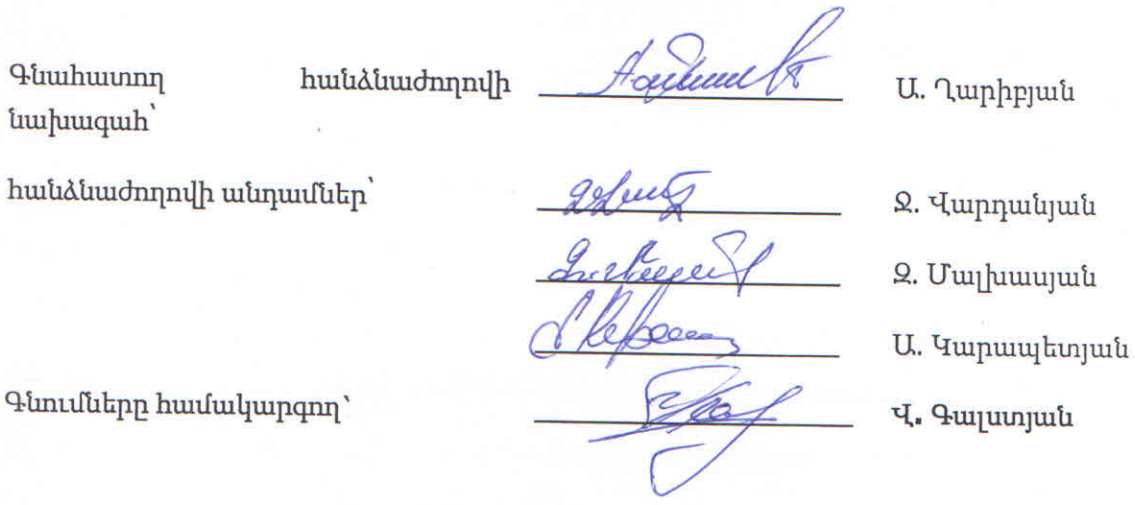 Գնահատող հանձնաժողովի Ա. Ղարիբյան
նախագահ՝
հանձնաժողովի անդամներ՝ Ջ. Վարդանյան
Զ. Մալխասյան
Ա. Կարապետյան
Գնումները համակարգող՝ Վ. Գալստյան